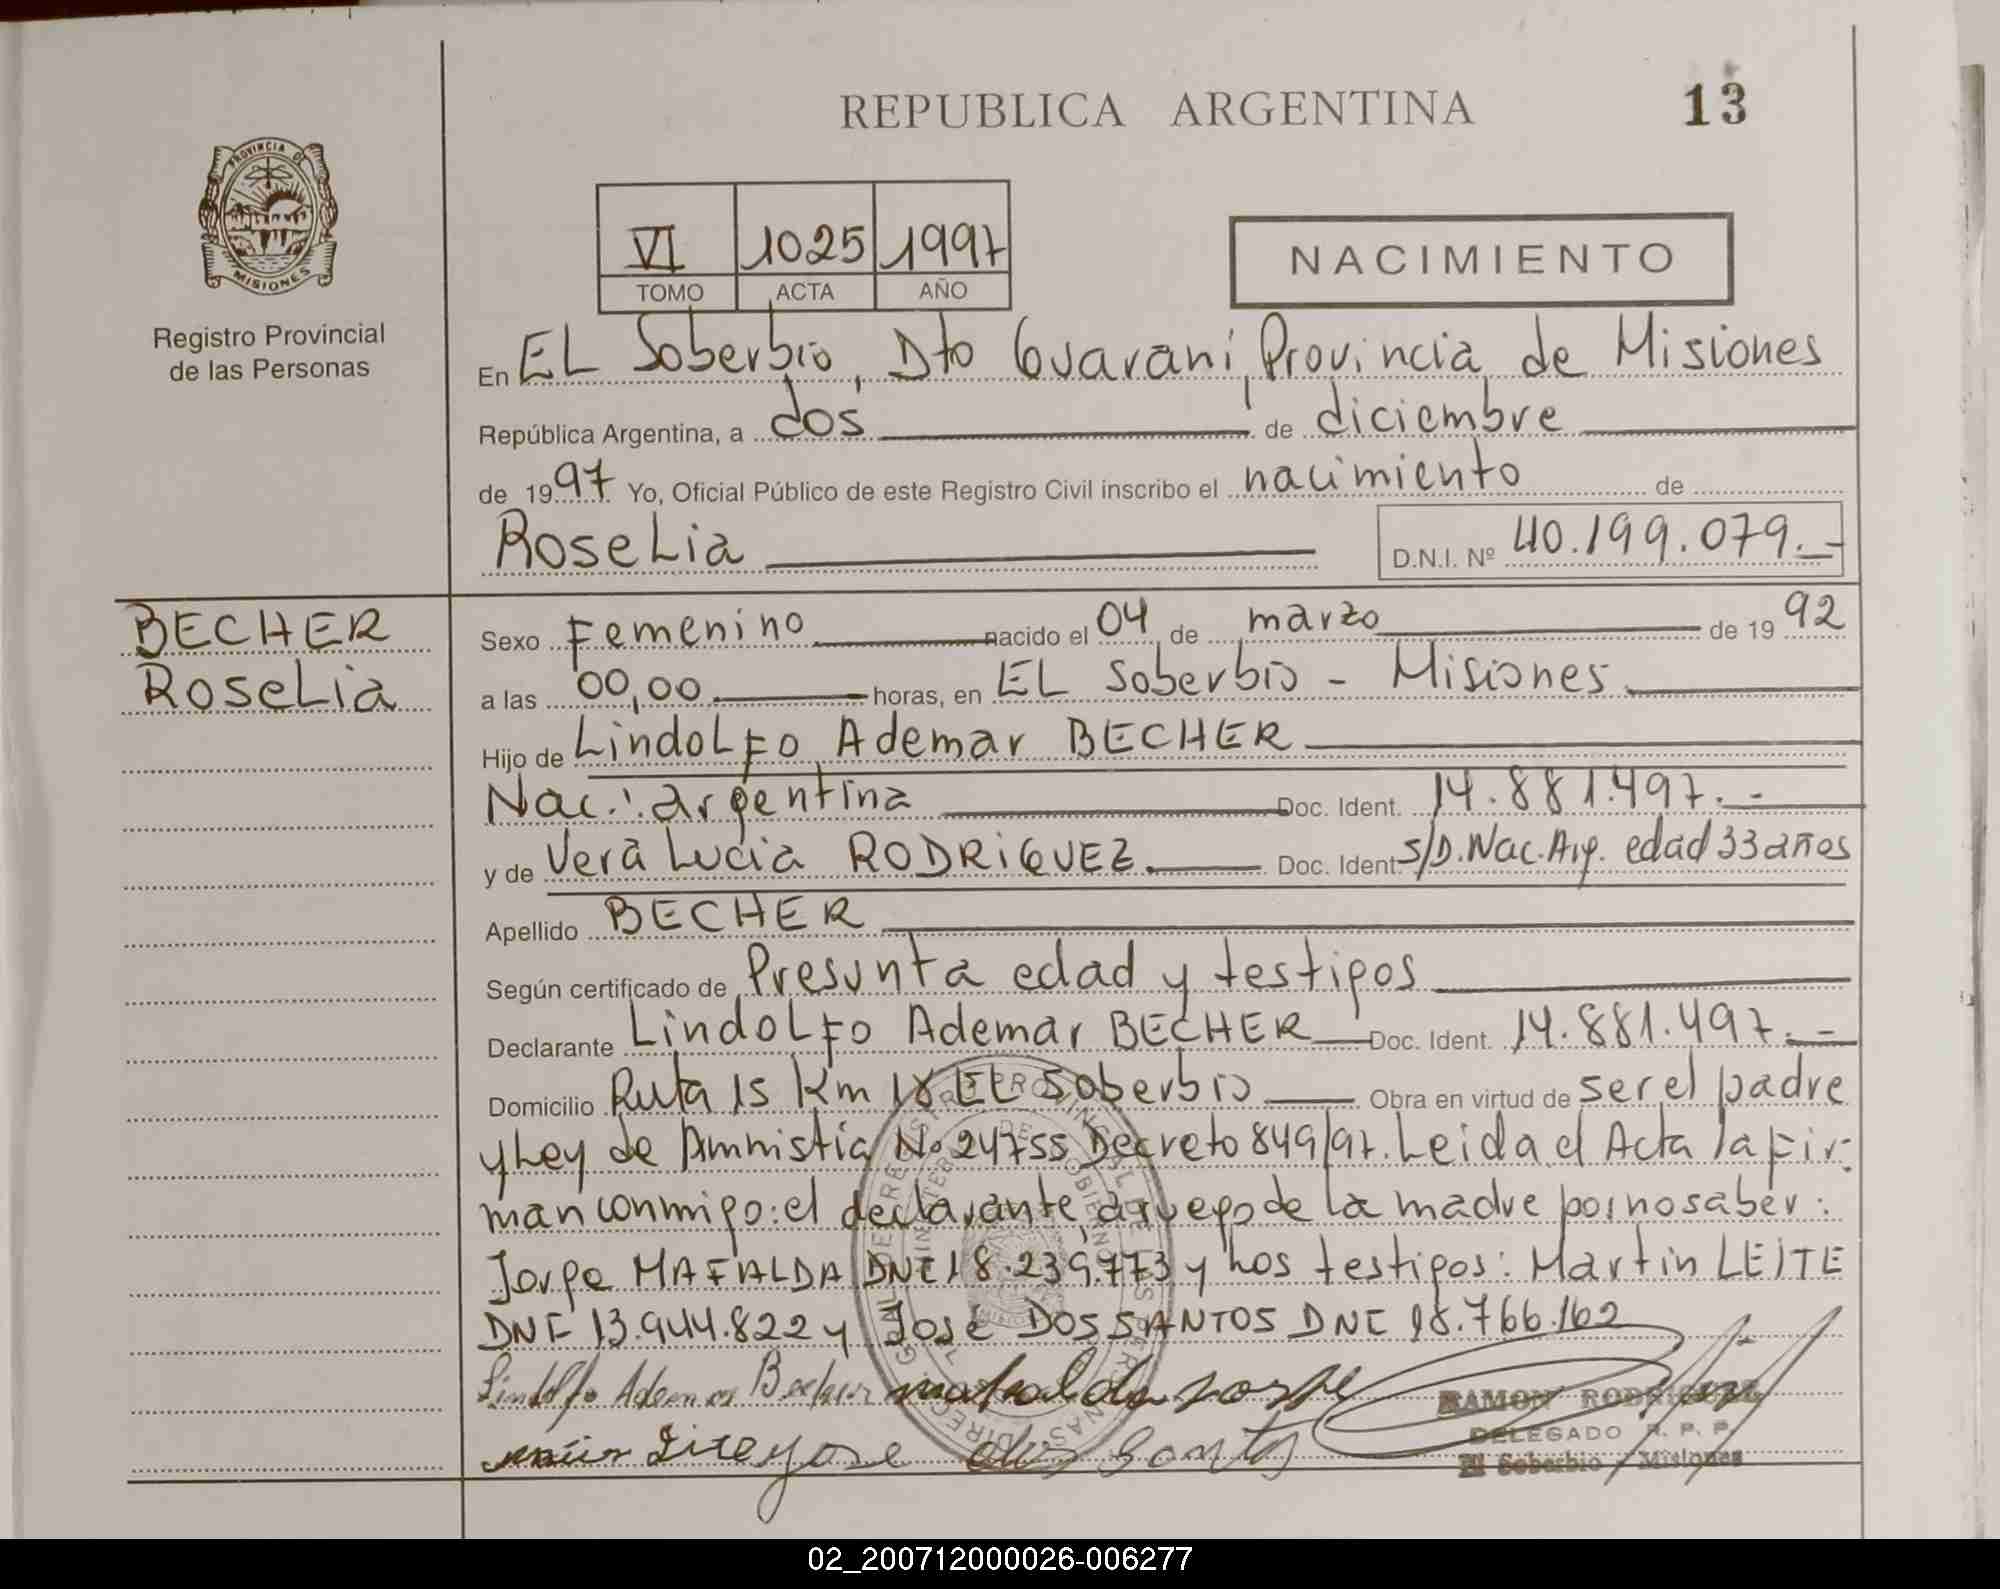 REPUBLICA ARGENTINA
13
PROVINCIA DE
MISIONES
Registro Provincial
de las Personas
VI 1025 1997
TOMO ACTA AÑO
NACIMIENTO
En EL Soberbio, Dto Guaraní, Provincia de Misiones
República Argentina, a dos de diciembre
de 1997 Yo, Oficial Público de este Registro Civil inscribo el nacimiento de
Roselia D.N.I. Nº 40.199.079.-
BECHER
Roselia
Sexo Femenino nacido el 04 de marzo de 1992
a las 00,00 horas, en EL Soberbio - Misiones
Hijo de Lindolfo Ademar BECHER
Nac.: argentina Doc. Ident. 14.881.497.-
y de Vera Lucia RODRIGUEZ. Doc. Ident. S/D. Nac. Arg. edad 33 años
Apellido BECHER
Según certificado de Presunta edad y testigos
Declarante Lindolfo Ademar BECHER Doc. Ident. 14.881.497.-
Domicilio Ruta 15 Km 18 EL Soberbio Obra en virtud de ser el padre
y Ley de Amnistia No 24755 Decreto 849/97. Leida el Acta la fir-
man conmigo: el declarante, a ruego de la madre por no saber:
Jorge MAFALDA DNI 18.239.773 y Los testigos: Martin LEITE
DNI 13.944.822 y José DOS SANTOS DNI 18.766.162
Lindolfo Ademar Becher mafalda Jorge
Leite jose dos Santos
RAMON RODRIGUEZ
DELEGADO R. P. P.
El Soberbio - Misiones
02_200712000026-006277